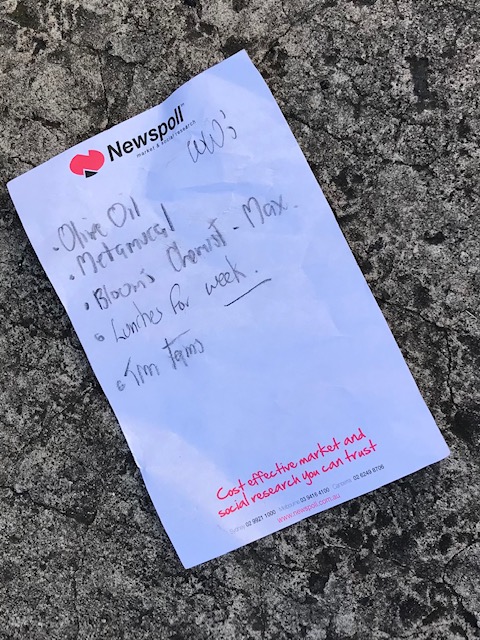 Newspoll™
market & social research
WW's
• Olive Oil
• Metamucal
• Bloom's Chemist - Max.
• Lunches for week.
• Tim Tams
Cost effective market and
social research you can trust
Sydney 02 9921 1000 Melbourne 03 9416 4100 Canberra 02 6249 8706
www.newspoll.com.au